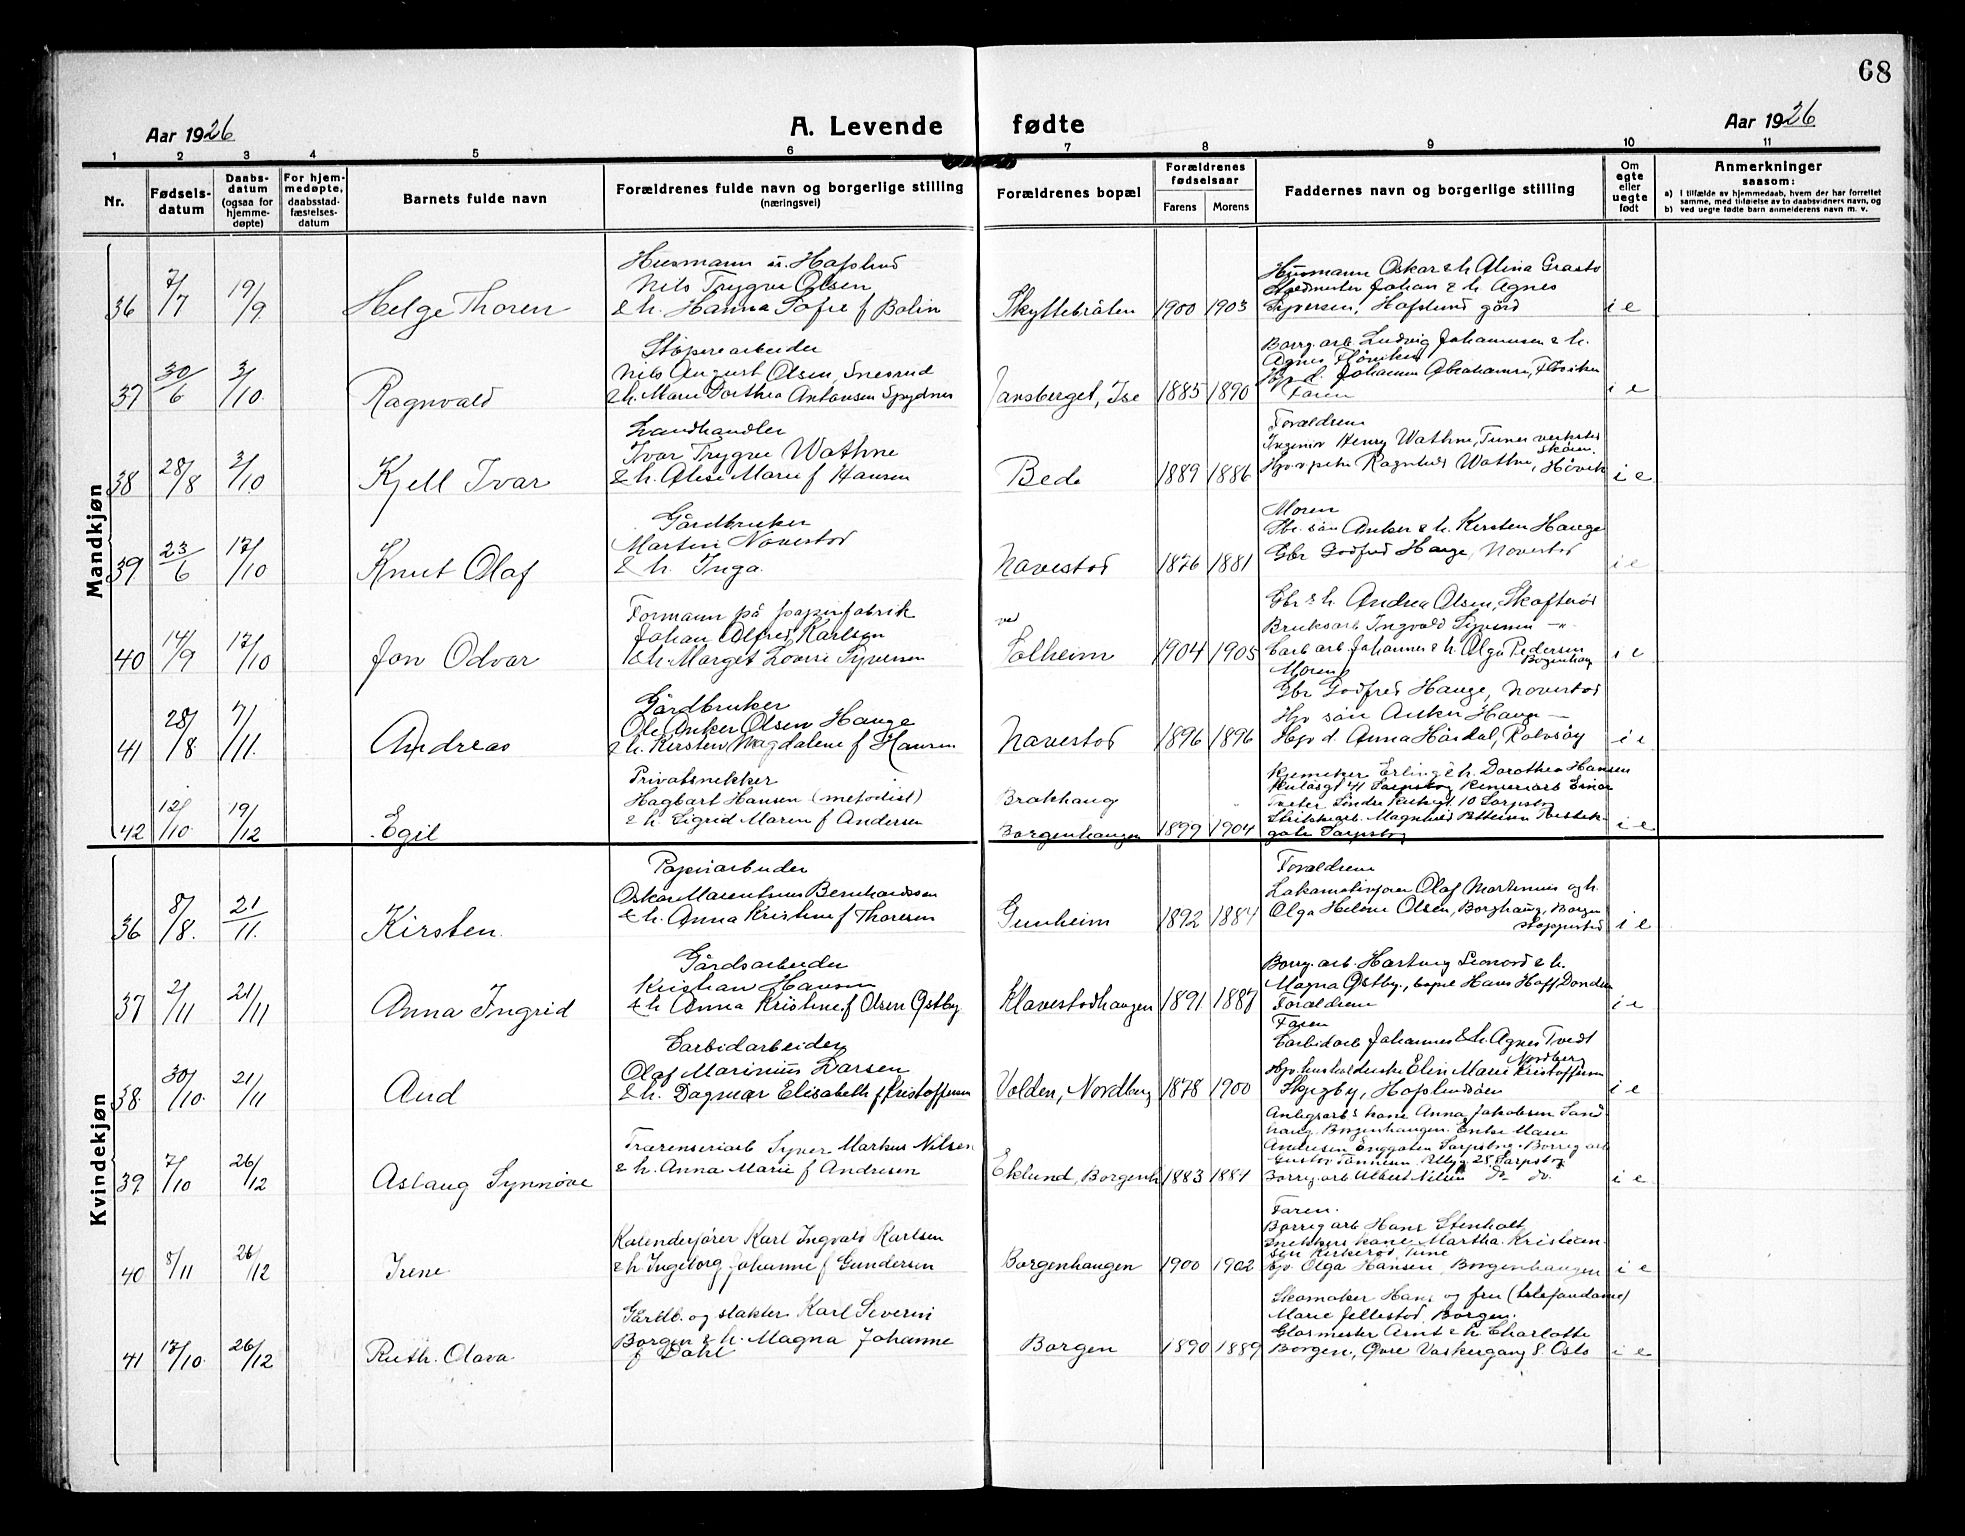 68
Aar 1926
A. Levende fødte
Aar 1926
1 2 3 4 5 6 7 8 9 10 11
Nr.
Fødselsdatum
Daabsdatum (ogsaa for hjemmedøpte)
For hjemmedøpte, daabsstadfæstelsesdatum
Barnets fulde navn
Forældrenes fulde navn og borgerlige stilling
(næringsvei)
Forældrenes bopæl
Forældrenes fødselsaar
Farens Morens
Faddernes navn og borgerlige stilling
Om egte eller uegte født
Anmerkninger
saasom:
a) I tilfælde av hjemmedaab, hvem der har forrettet samme, med tilføielse av to daabsvidners navn, og
b) ved uegte fødte barn anmelderens navn m. v.
Mandkjøn
36 7/7 19/9 Helge Thoren
Husmann u. Hafslund
Nils Trygve Olsen
& h. Hanna Sofie f Bolin
Skyttebråten 1900 1903
Husmann Oskar & h. Alina Grasto
Johan & h Agnes
Syversen, Hafslund gård
i e
37 30/6 3/10 Ragnvald
Støperearbeider
Nils August Olsen, Snesrud
& h. Marie Dorthea Antonsen Spydnes
Jansberget, Ise 1885 1890
Borreg.arb Ludvig Johannesen & h.
Agnes Fløviken
Johanna Abrahamsen, Fløviken
Faren
i e
38 28/8 3/10 Kjell Ivar
Landhandler
Ivar Trygve Wathne
& h. Alise Marie f Hansen
Bede 1889 1886
Foraldrene
Ingeniør Henry Wathne, Tunes verksted
Skøien.
Ragnhild Wathne, Høvik
i e
39 23/6 17/10 Knut Olaf
Gårdbruker
Martin Navestad
& h. Inga.
Navestad 1876 1881
Moren
Gbr. søn Anker & h. Kirsten Hauge
Gbr Godfred Hauge, Navestad
i e
40 14/9 17/10 Jon Odvar
Formann på papirfabrik
Johan Alfred Karlsen
& h. Marget Lovise Syversen
ved
Solheim 1904 1905
Gbr & h. Andrea Olsen, Skofterød
Bruksarb Ingvald Syversen -"-
Carb arb Johannes & h. Olga Pedersen
Borgenhaug
Moren
i e
41 28/8 7/11. Andreas
Gårdbruker
Ole Anker Olsen Hauge
& h. Kirsten Magdalene f Hansen
Navestad 1896 1896
Gbr Godfred Hauge, Navestad
Hjv søn Anker Hauge —
Hjv d Anna Hårdal, Rolvsøy
i e
42 12/10 19/12 Egil
Privatsnekker
Hagbart Hansen (metodist)
& h. Sigrid Maren f Andersen
Brakhaug
Borgenhaugen 1899 1904
Erling & h. Dorothea Hansen
41 Sarpsborg Einar
Tveter Søndre 10 Sarpsborg
Magnhild Pettersen
gate Sarpsborg
i e
Kvindekjøn
36 8/8. 21/11. Kirsten.
Papirarbeider
Oskar Marentius Bernhardssen
& h. Anna Kristine f Thoresen
Gunheim 1892 1884
Foraldrene
Lokomotivfører Olaf Martinius og h.
Olga Helene Olsen, Borghaug, Borgen
stoppested
i e
37 2/11 21/11 Anna Ingrid
Gårdsarbeider
Kristian Hansen
& h. Anna Kristine f Olsen Østby
Navestadhaugen 1891 1887
Borreg.arb. Hartvig Leonard & h.
Magna Østby, Hans Hoff Donden
Foraldrene
i e
38 30/10. 21/11 Aud
Carbidarbeider
Olaf Marinius Larsen
& h. Dagmar Elisabeth f Kristoffersen
Volden, Nordberg 1878 1900
Faren
Carbidarb Johannes & h. Agnes Tvedt
Nordberg
Hjv husholderske Elin Marie Kristoffersen
Skjeby, Hafslundsøen
i e
39 7/10 26/12 Aslaug Synnøve
Trærenseriarb Syver Markus Nilsen
& h. Anna Marie f Andresen
Eklund, Borgenh 1883 1884
Anlegsarb's kone Anna Jakobsen Sand
haug Borgenhaugen. Enke Marie
Andresen Enggaten Sarpsborg. Borreg arb
Gustav Tønnesen 28 Sarpsborg
Borreg. arb Albert Nilsen do do.
i e
40 8/11 26/12 Irene
Kalenderfører Karl Ingvald Karlsen
& h Ingeborg Johanne f Gundersen
Borgenhaugen 1900 1902
Faren.
Borreg arb Hans Stenholt
Snekkers kone Martha Kristian-
sen Kirkerød, Tune
Hjv Olga Hansen, Borgenhaugen
i e
41 17/10. 26/12 Ruth. Olava
Gårdb. og slakter Karl Severin
Borgen & h. Magna Johanne
f Dahl
Borgen 1890 1889
Skomaker Hans og fru (telefondame)
Marie Jellestad Borgen.
Glasmester Arnt & h Charlotte
Borgen, Øvre Vaskergang 8. Oslo
i e